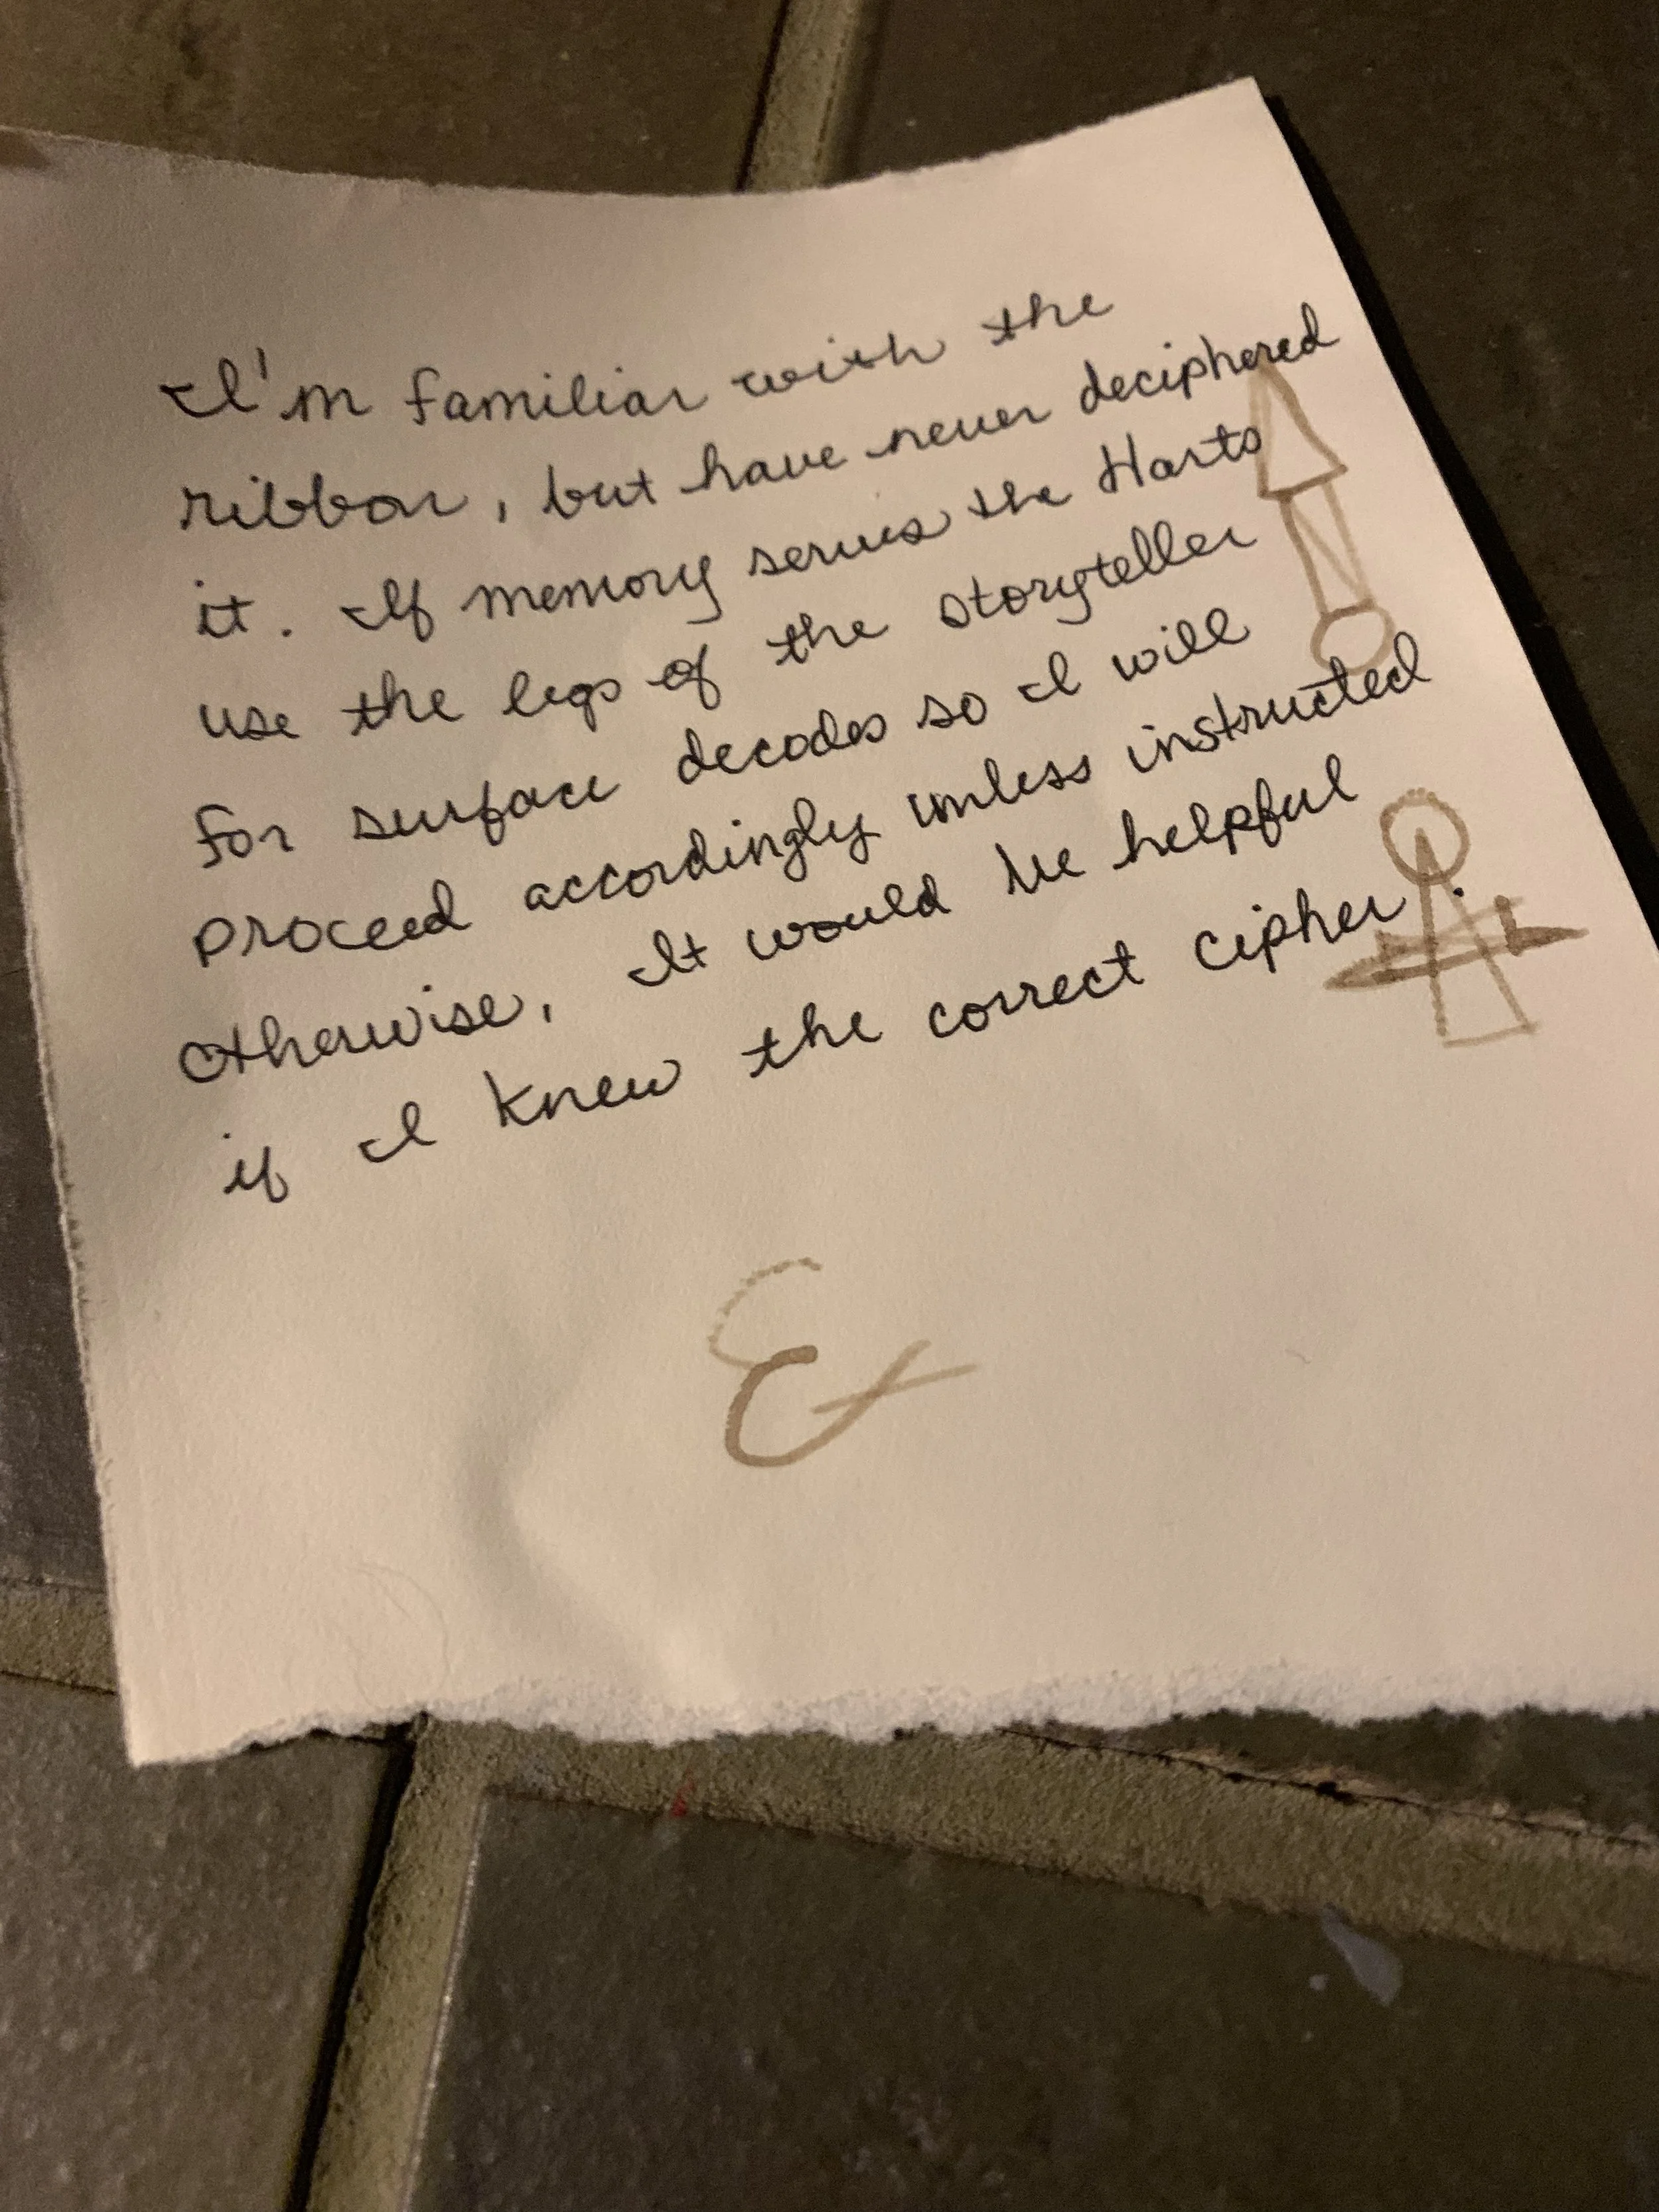 I'm familiar with the
ribbon, but have never deciphered
it. If memory serves the Harts
use the legs of the storyteller
for surface decodes so I will
proceed accordingly unless instructed
otherwise. It would be helpful
if I knew the correct cipher.